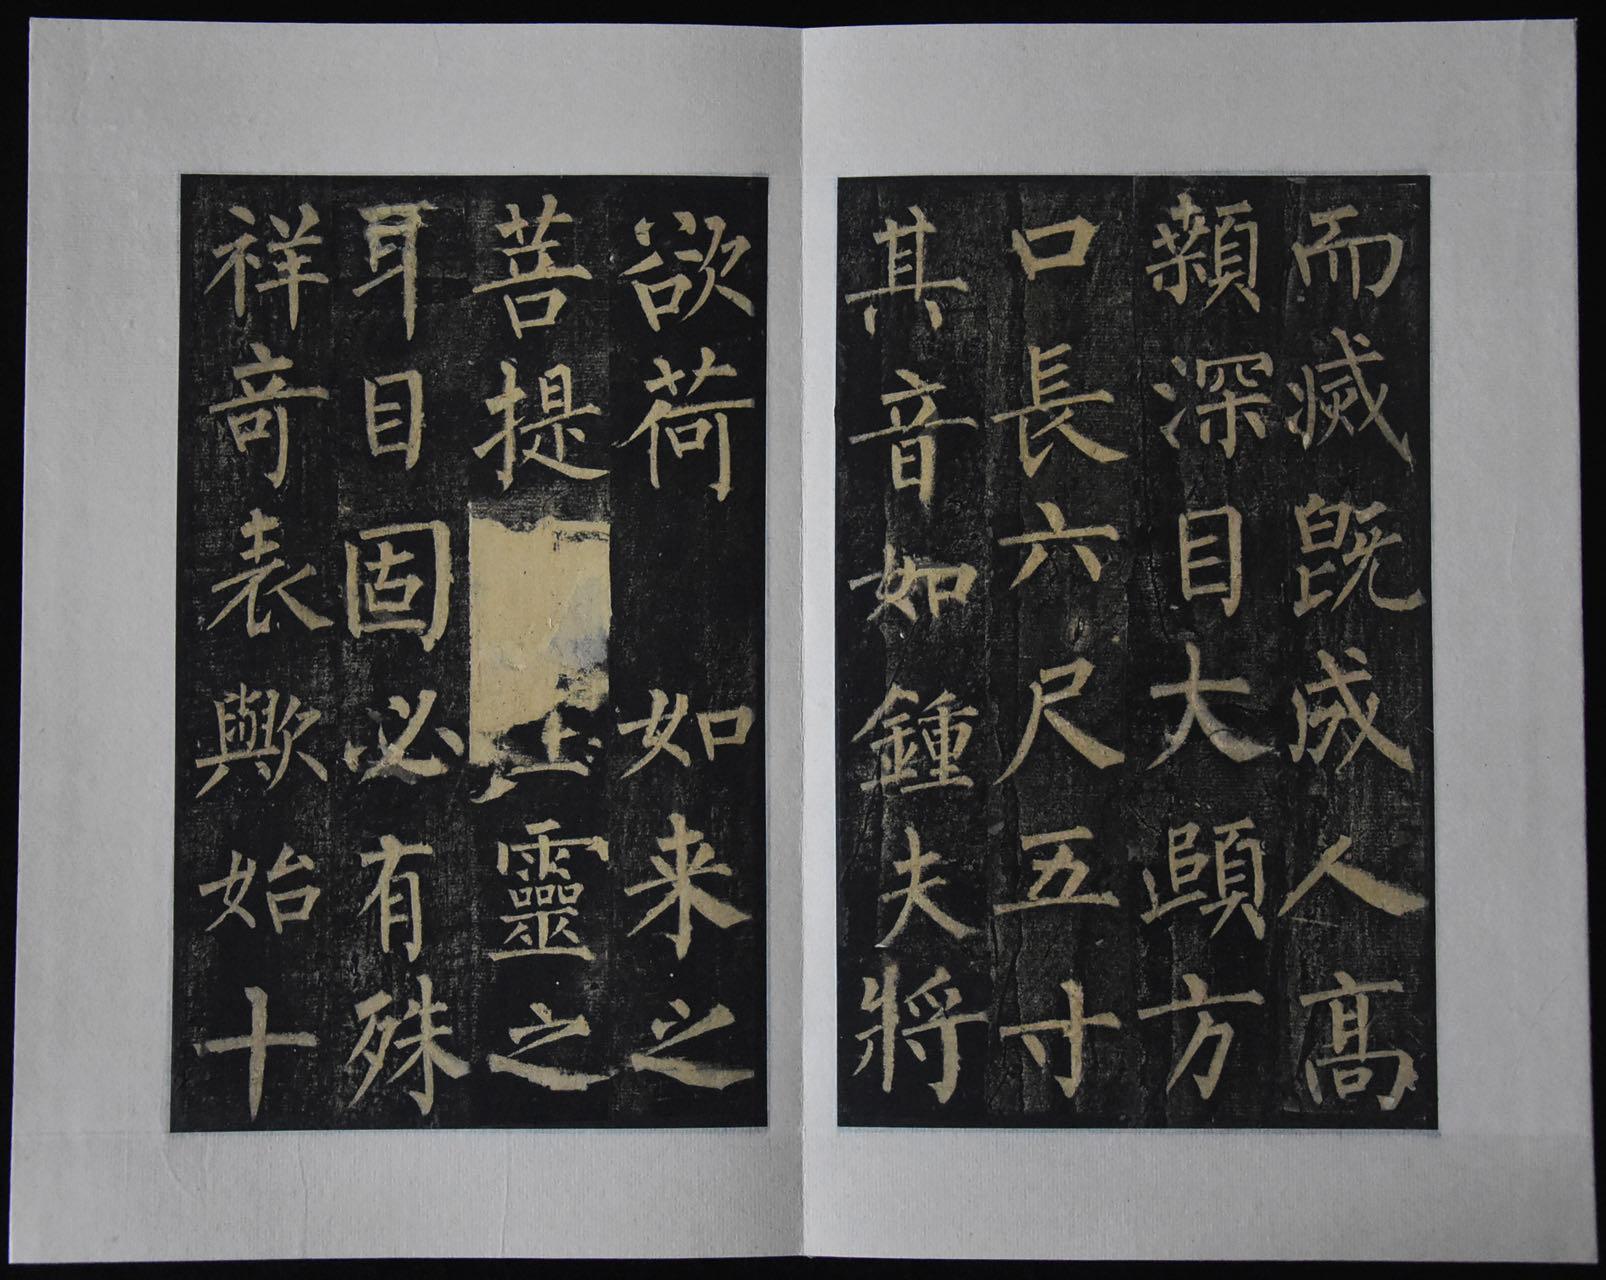 而滅既成人髙
顙深目大頤方
口長六尺五寸
其音如鍾夫將
欲荷如来之
菩提靈之
耳目固必有殊
祥竒表歟始十